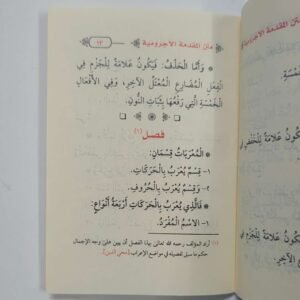 متن المقدمة الآجرومية
١٢
* وَأَمَّا الْحَذْفُ: فَيَكُونُ عَلَامَةً لِلْجَزْمِ فِي
الْفِعْلِ الْمُضَارِعِ الْمُعْتَلِّ الْآخِرِ، وَفِي الْأَفْعَالِ
الْخَمْسَةِ الَّتِي رَفْعُهَا بِثَبَاتِ النُّونِ.
فصل (١)
* الْمُعْرَبَاتُ قِسْمَانِ:
١- قِسْمٌ يُعْرَبُ بِالْحَرَكَاتِ.
٢- وَقِسْمٌ يُعْرَبُ بِالْحُرُوفِ.
* فَالَّذِي يُعْرَبُ بِالْحَرَكَاتِ أَرْبَعَةُ أَنْوَاعٍ:
١- الِاسْمُ الْمُفْرَدُ.
(١) أراد المؤلف رحمه الله تعالى بهذا الفصل أن يبين على وجه الإجمال
حكم ما سبق تفصيله في مواضع الإعراب.
متن المقدمة
الْخَمْسَةِ
يَكُونُ عَلَامَةً لِلْخَفْضِ